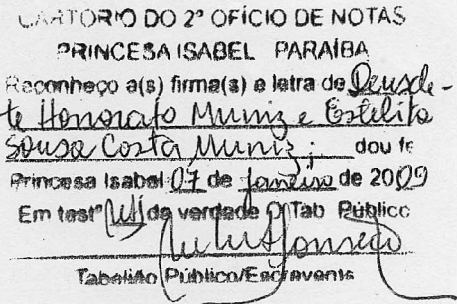 CARTORIO DO 2º OFÍCIO DE NOTAS
PRINCESA ISABEL PARAÍBA
Reconheço a(s) firma(s) e letra de Deusde-
te Honorato Muniz e Estelita
Sousa Costa Muniz; dou fe
Princesa Isabel 07 de Janeiro de 2009
Em testº da verdade O Tab Público
Tabelião Público/Escrevente